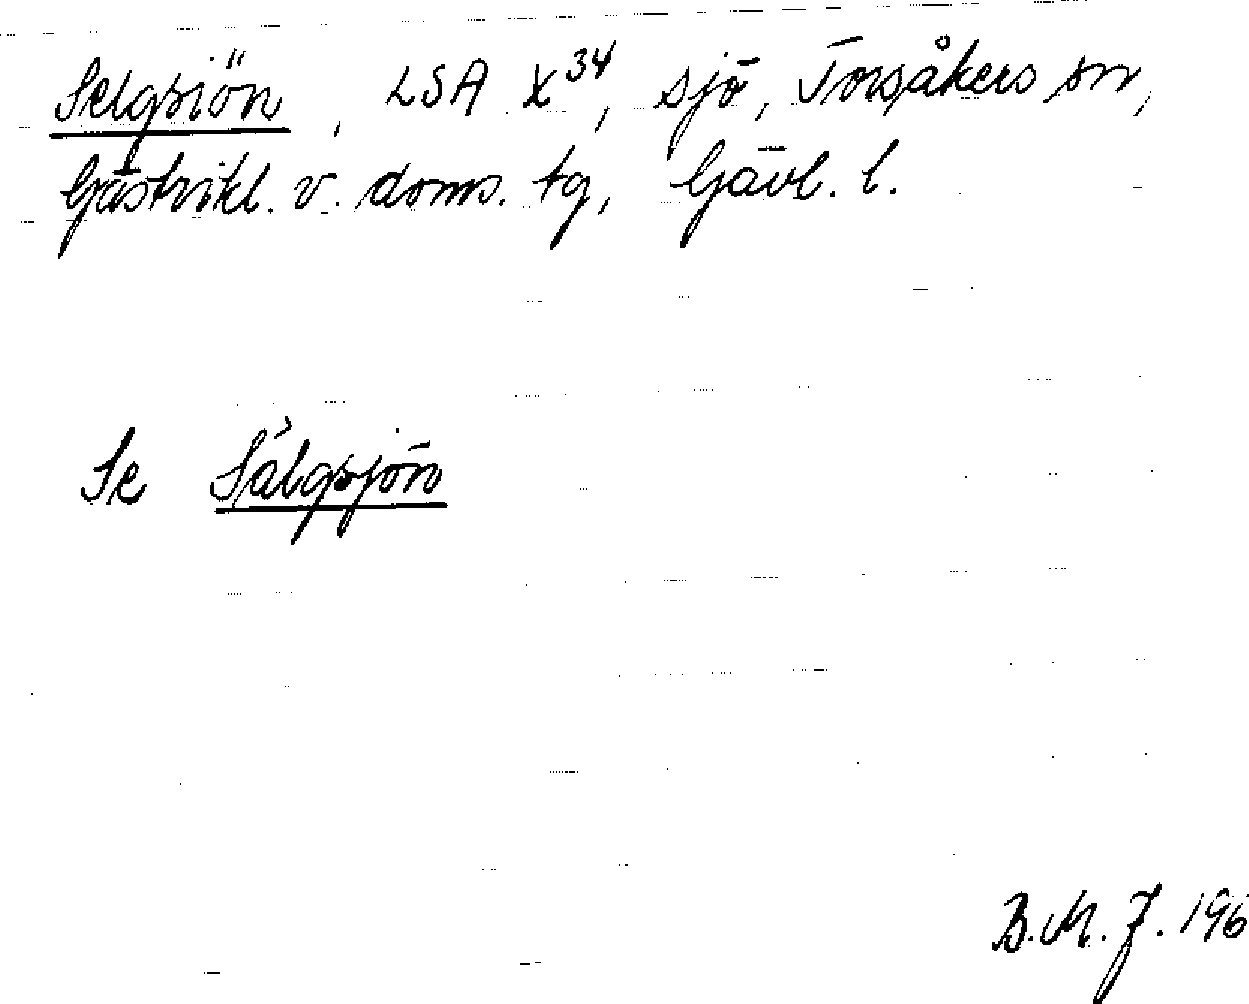 Selgsiön, LSA X34, sjö, Torsåkers sn,
Gästrikl. v. doms. tg, Gävl. l.
Se Sälgsjön
B.M.J. 196